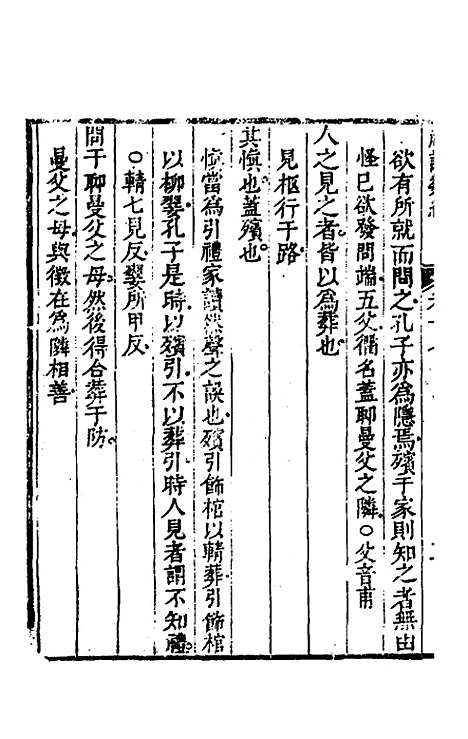 欲有所就而問之孔子亦為隱焉殯于家則知之者無由
怪已欲發問端五父衢名蓋耼曼父之隣○父音甫
人之見之者皆以為葬也
見柩行于路
其慎也蓋殯也
慎當為引禮家讀然聲之誤也殯引飾棺以輤葬引飾棺
以柳翣孔子是時以殯引不以葬引時人見者謂不知禮
○輤七見反翣所甲反
問于耼曼父之母然後得合葬于防
曼父之母與徵在為隣相善